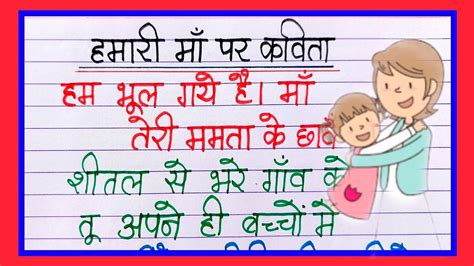 हमारी माँ पर कविता
हम भूल गये है। माँ
तेरी ममता के छावँ
शीतल से भरे गाँव के
तू अपने ही बच्चों मे